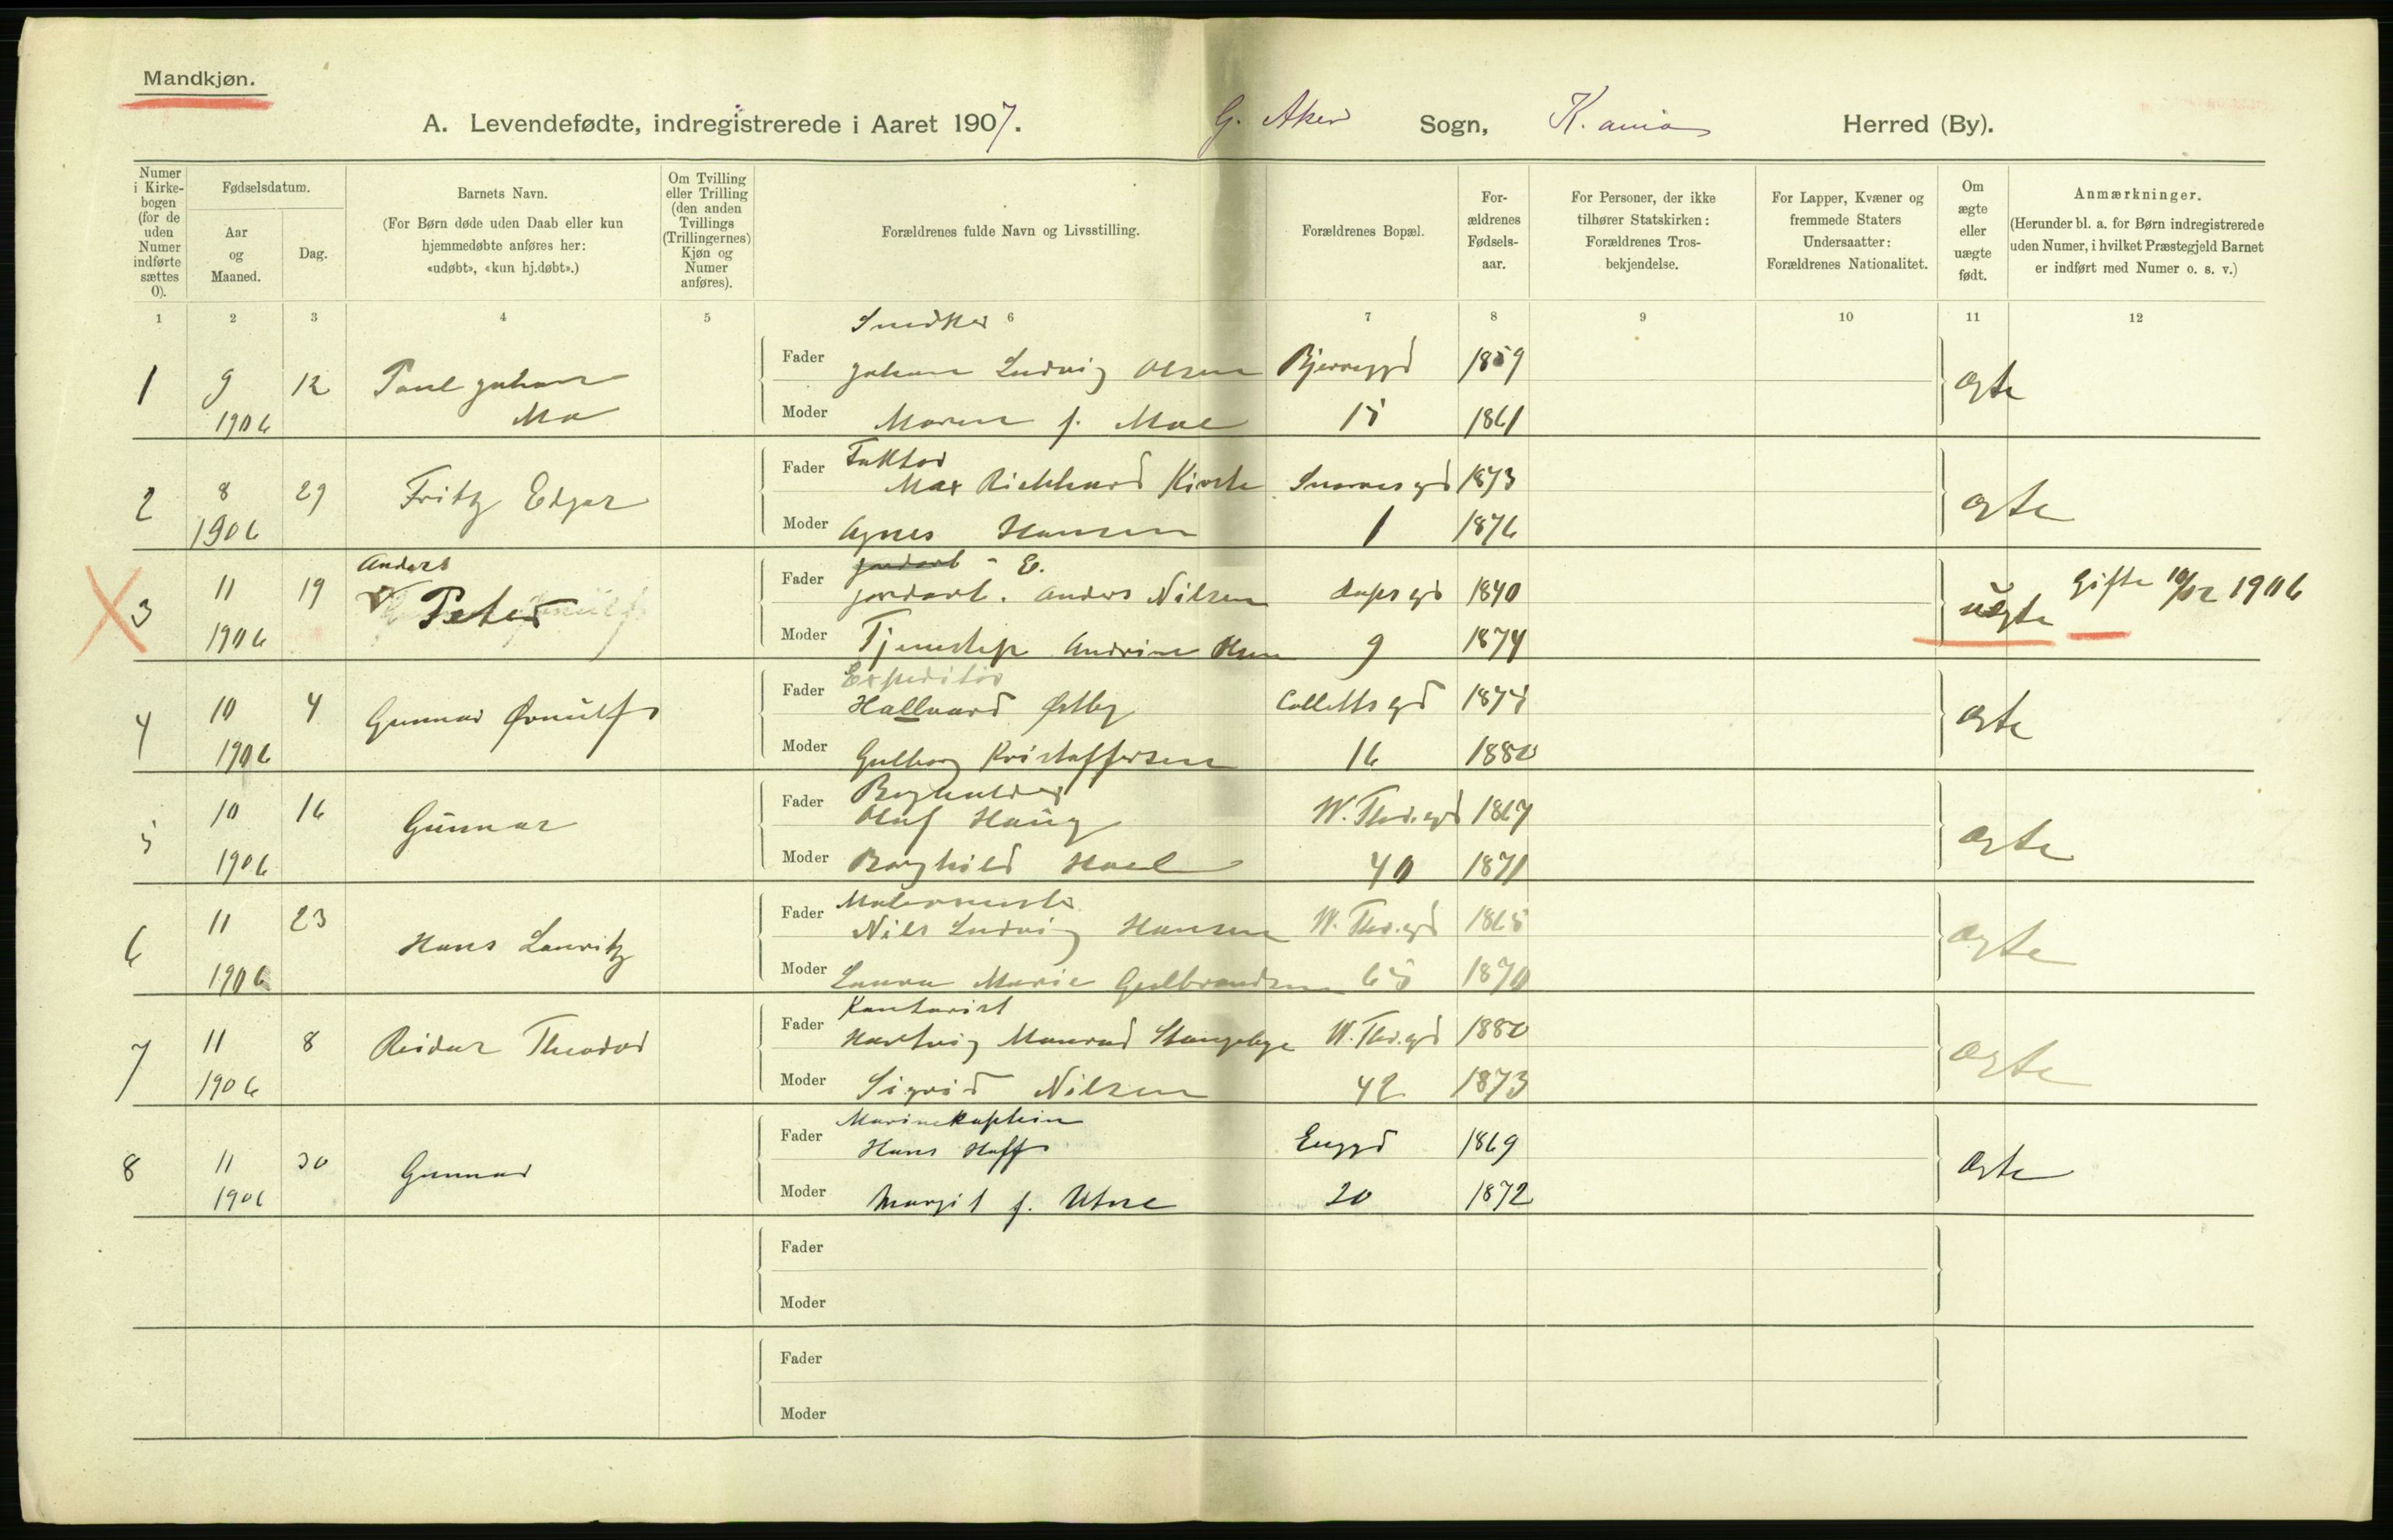 Mandkjøn.
A. Levendefødte, indregistrerede i Aaret 1907. G. Aker Sogn, K.ania Herred (By).
Numer i Kirkebogen (for de uden Numer indførte sættes 0).
Fødselsdatum.
Aar og Maaned.
Dag.
Barnets Navn.
(For Børn døde uden Daab eller kun hjemmedøbte anføres her: «udøbt», «kun hj.døbt».)
Om Tvilling eller Trilling (den anden Tvillings (Trillingernes) Kjøn og Numer anføres).
Forældrenes fulde Navn og Livsstilling.
Forældrenes Bopæl.
Forældrenes Fødselsaar.
For Personer, der ikke tilhører Statskirken: Forældrenes Trosbekjendelse.
For Lapper, Kvæner og fremmede Staters Undersaatter: Forældrenes Nationalitet.
Om ægte eller uægte født.
Anmærkninger.
(Herunder bl. a. for Børn indregistrerede uden Numer, i hvilket Præstegjeld Barnet er indført med Numer o. s. v.)
1 2 3 4 5 6 7 8 9 10 11 12
Snedker
1 9 12 Paul Johan Fader Johan Ludvig Olsen 1859 ægte
1906 Mo Moder Maren f. Moe 15 1861
Faktor
2 8 29 Fritz Edgar Fader Max Richhard 1873 ægte
1906 Moder Agnes Hansen 1 1876
Anders jordarb - E.
3 11 19 Peter Fader jordarb. Anders Nilsen 1840 uægte Gifte 10/12 1906
1906 Moder Andrine 9 1874
Expeditør
4 10 4 Gunnar Ørnulf Fader Hallvard Østby Colletts gd 1874 ægte
1906 Moder Gulborg Kristoffersen 16 1880
Bogholder
5 10 16 Gunnar Fader Olaf Haug W. Thr.gd 1867 ægte
1906 Moder Borghild Hoel 40 1871
Malermester
6 11 23 Hans Lauritz Fader Nils Ludvig Hansen W. Thr.gd 1865 ægte
1906 Moder Laura Marie Gulbrandsen 65 1870
Kontorist
7 11 8 Reidar Theodor Fader Hartvig Monrad Stangebye W. Thr.gd 1880 ægte
1906 Moder Sigrid Nilsen 42 1873
Marinekaptein
8 11 30 Gunnar Fader Hans Hoff Enggd 1869 ægte
1906 Moder Margit f. Utne 20 1872
Fader
Moder
Fader
Moder